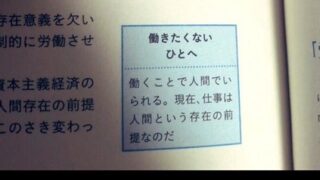 存在意義を欠い
制的に労働させ
資本主義経済の
人間存在の前提
このさき変わっ
働きたくない
ひとへ
働くことで人間でい
られる。現在、仕事は
人間という存在の前
提なのだ